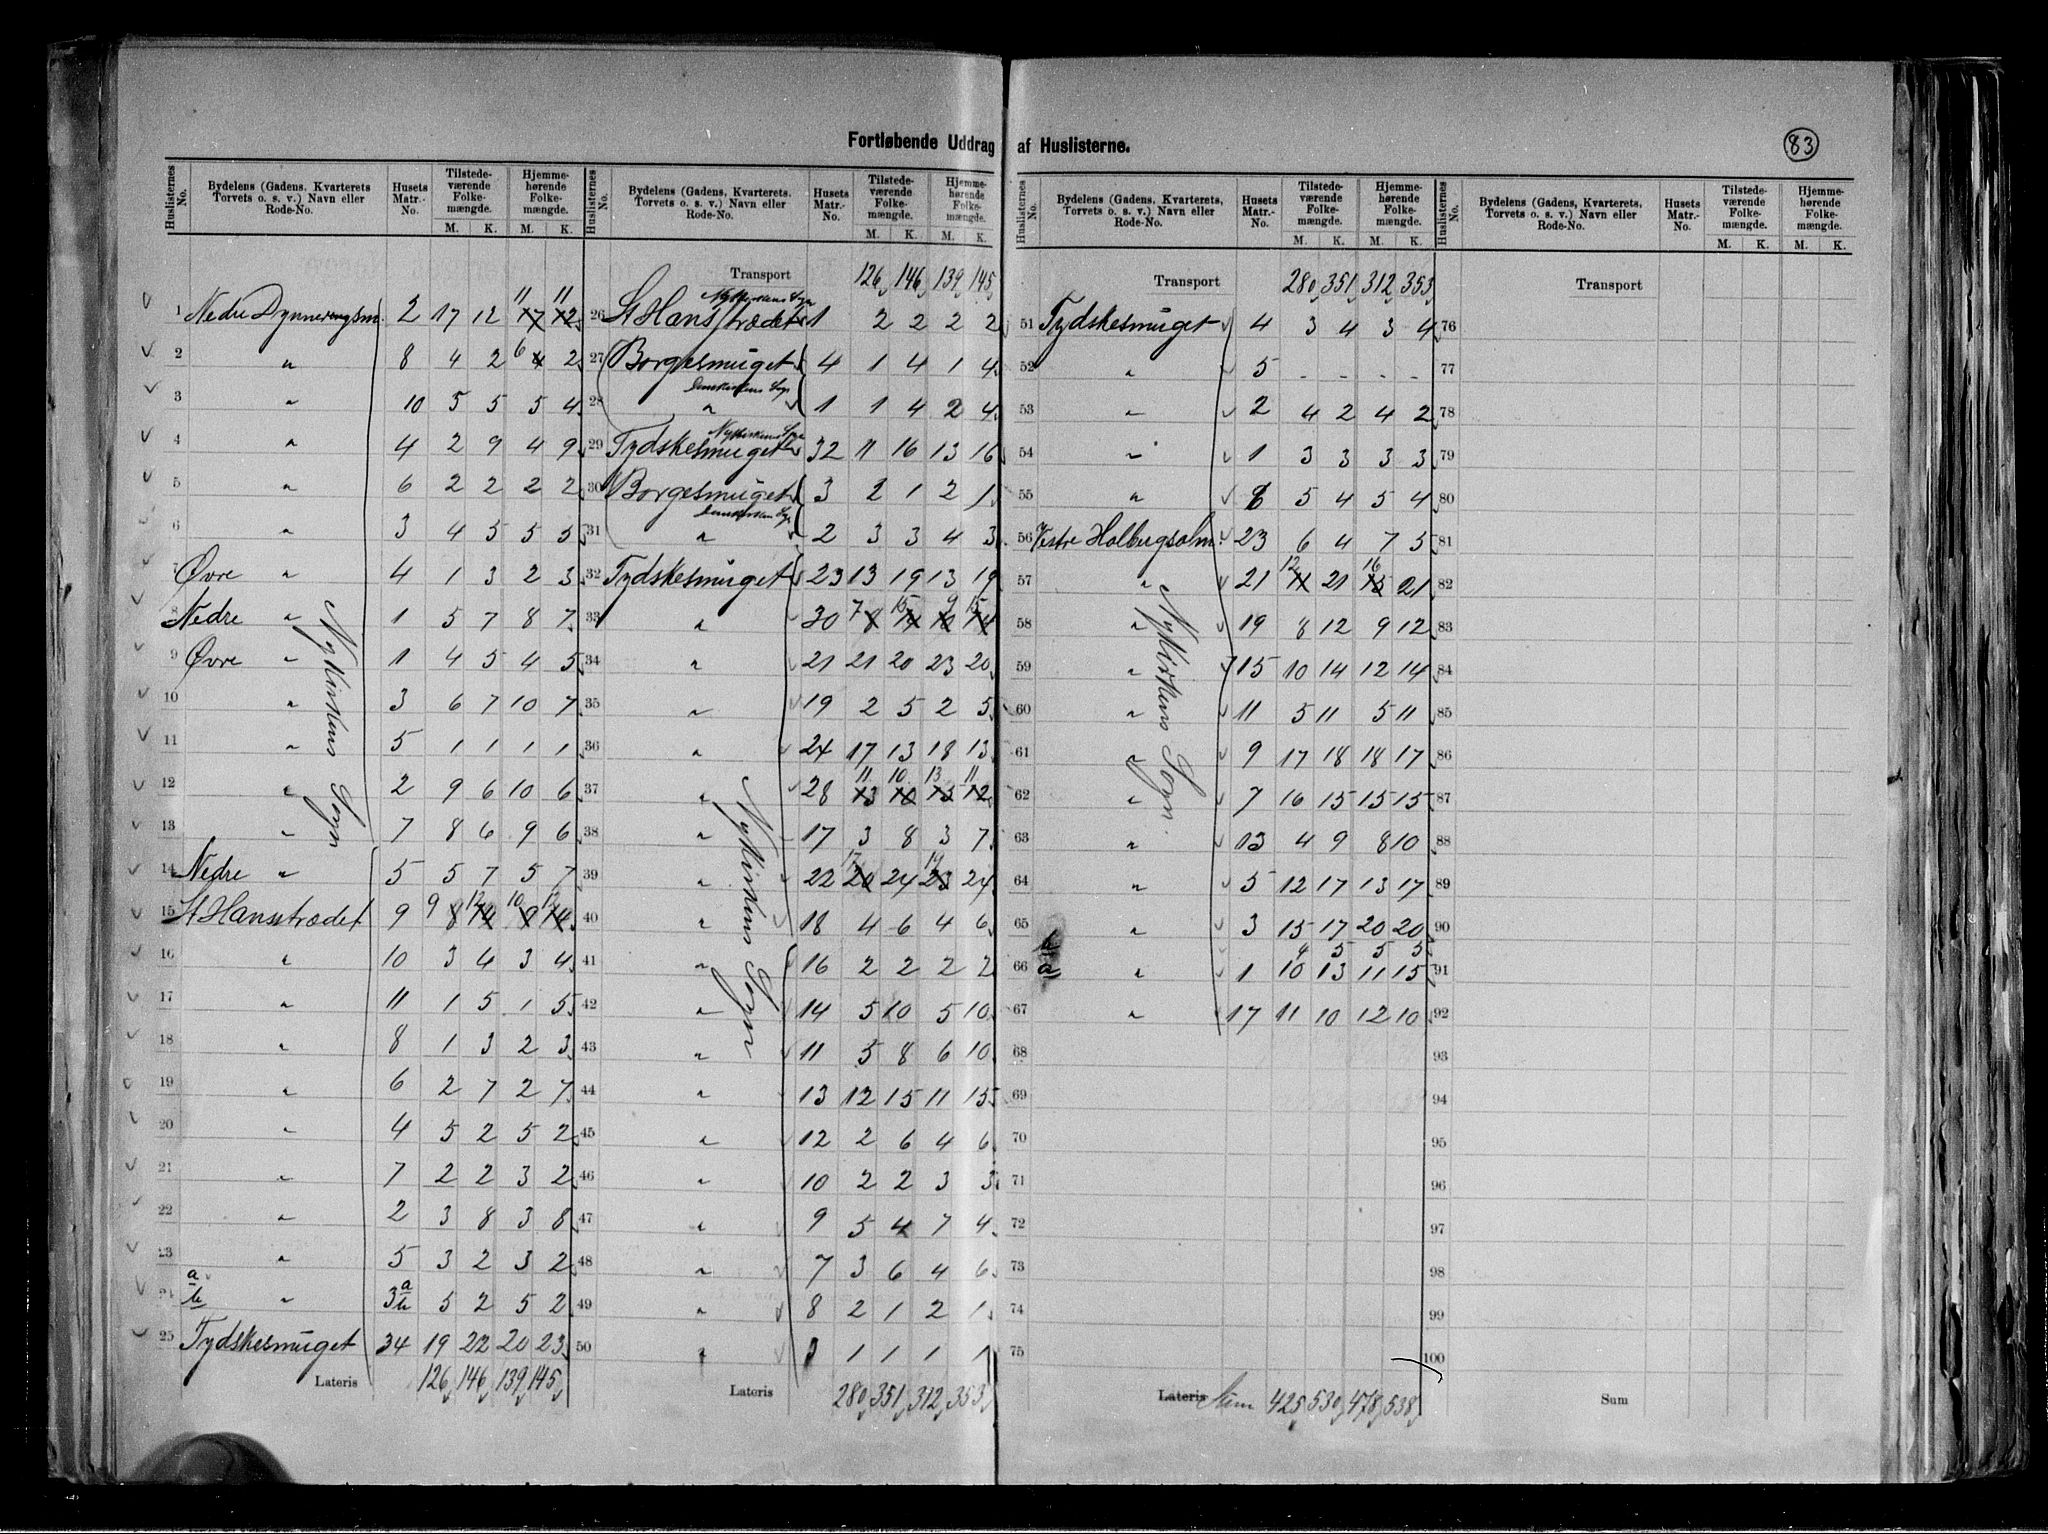 Fortløbende Uddrag af Huslisterne.
83
Huslisternes No. | Bydelens (Gadens, Kvarterets Torvets o. s. v.) Navn eller Rode-No. | Husets Matr.-No. | Tilstedeværende Folkemængde. M. K. | Hjemmehørende Folkemængde. M. K.
1 Nedre Dynneringsm. 2 17 12 11 11
2 " 8 4 2 6 2
3 " 10 5 5 5 4
4 " 4 2 9 4 9
5 " 6 2 2 2 2
6 " 3 4 5 5 5
7 Øvre " 4 1 3 2 3
8 Nedre " 1 5 7 8 7
9 Øvre " 1 4 5 4 5
10 " 3 6 7 10 7
11 " 5 1 1 1 1
12 " 2 9 6 10 6
13 " 7 8 6 9 6
Nykirkens Sogn
14 Nedre " 5 5 7 5 7
15 St Hansstrædet 9 9 12 10 12
16 " 10 3 4 3 4
17 " 11 1 5 1 5
18 " 8 1 3 2 3
19 " 6 2 7 2 7
20 " 4 5 2 5 2
21 " 7 2 2 3 2
22 " 2 3 8 3 8
23 " 5 3 2 3 2
24 a b " 3 a b 5 2 5 2
25 Tydskesmuget 34 19 22 20 23
Lateris 126 146 139 145
Huslisternes No. | Bydelens (Gadens, Kvarterets. Torvets o. s. v.) Navn eller Rode-No. | Husets Matr.-No. | Tilstedeværende Folkemængde. M. K. | Hjemmehørende Folkemængde. M. K.
Transport 126 146 139 145
Nykirkens Sogn
26 St Hansstrædet 1 2 2 2 2
27 Borgesmuget 4 1 4 1 4
Domkirkens Sogn
28 " 1 1 4 2 4
Nykirkens Sogn
29 Tydskesmuget 32 11 16 13 16
30 Borgesmuget 3 2 1 2 1
Domkirkens Sogn
31 " 2 3 3 4 3
32 Tydskesmuget 23 13 19 13 19
33 " 30 7 15 9 15
34 " 21 21 20 23 20
35 " 19 2 5 2 5
36 " 24 17 13 18 13
37 " 28 11 10 13 11
38 " 17 3 8 3 7
39 " 22 17 24 19 24
40 " 18 4 6 4 6
41 " 16 2 2 2 2
42 " 14 5 10 5 10
43 " 11 5 8 6 10
44 " 13 12 15 11 15
45 " 12 2 6 4 6
46 " 10 2 2 3 3
47 " 9 5 4 7 4
48 " 7 3 6 4 6
49 " 8 2 1 2 1
50 " 1 1 1 1
Nykirkens Sogn
Lateris 280 351 312 353
Huslisternes No. | Bydelens (Gadens, Kvarterets, Torvets o. s. v.) Navn eller Rode-No. | Husets Matr.-No. | Tilstedeværende Folkemængde. M. K. | Hjemmehørende Folkemængde. M. K.
Transport 280 351 312 353
51 Tydskesmuget 4 3 4 3 4
52 " 5 - - - -
53 " 2 4 2 4 2
54 " 1 3 3 3 3
55 " 6 5 4 5 4
56 Vestre Holbergsalm. 23 6 4 7 5
57 " 21 12 21 16 21
58 " 19 8 12 9 12
59 " 15 10 14 12 14
60 " 11 5 11 5 11
61 " 9 17 18 18 17
62 " 7 16 15 15 15
63 " 13 4 9 8 10
64 " 5 12 17 13 17
65 " 3 15 17 20 20
b 4 5 5 5
66 a " 1 10 13 11 15
67 " 17 11 10 12 10
Nykirkens Sogn.
68
69
70
71
72
73
74
75
Lateris Sum 425 530 478 538
Huslisternes No. | Bydelens (Gadens, Kvarterets Torvets o. s. v.) Navn eller Rode-No. | Husets Matr.-No. | Tilstedeværende Folkemængde. M. K. | Hjemmehørende Folkemængde. M. K.
Transport
76
77
78
79
80
81
82
83
84
85
86
87
88
89
90
91
92
93
94
95
96
97
98
99
100
Sum